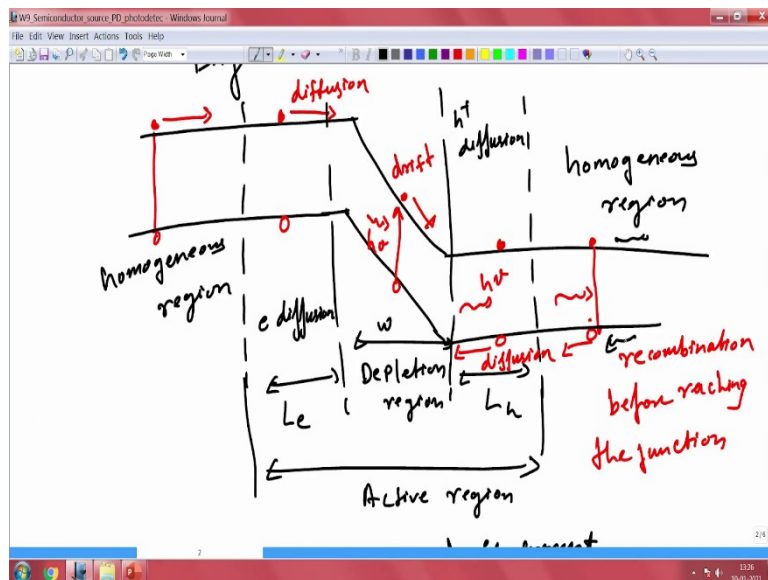 W9_Semiconductor_source_PD_photodetec - Windows Journal
File Edit View Insert Actions Tools Help
Page Width
diffusion
h+
diffusion
drift
homogeneous
region
hν
homogeneous
region
e diffusion
hν
w
diffusion
Depletion
region
Le
Lh
recombination
before raching
the junction
Active region
2
2/6
13:26